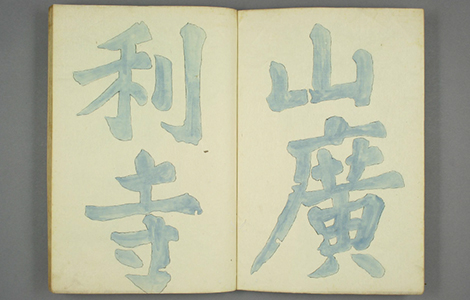 山廣
利寺